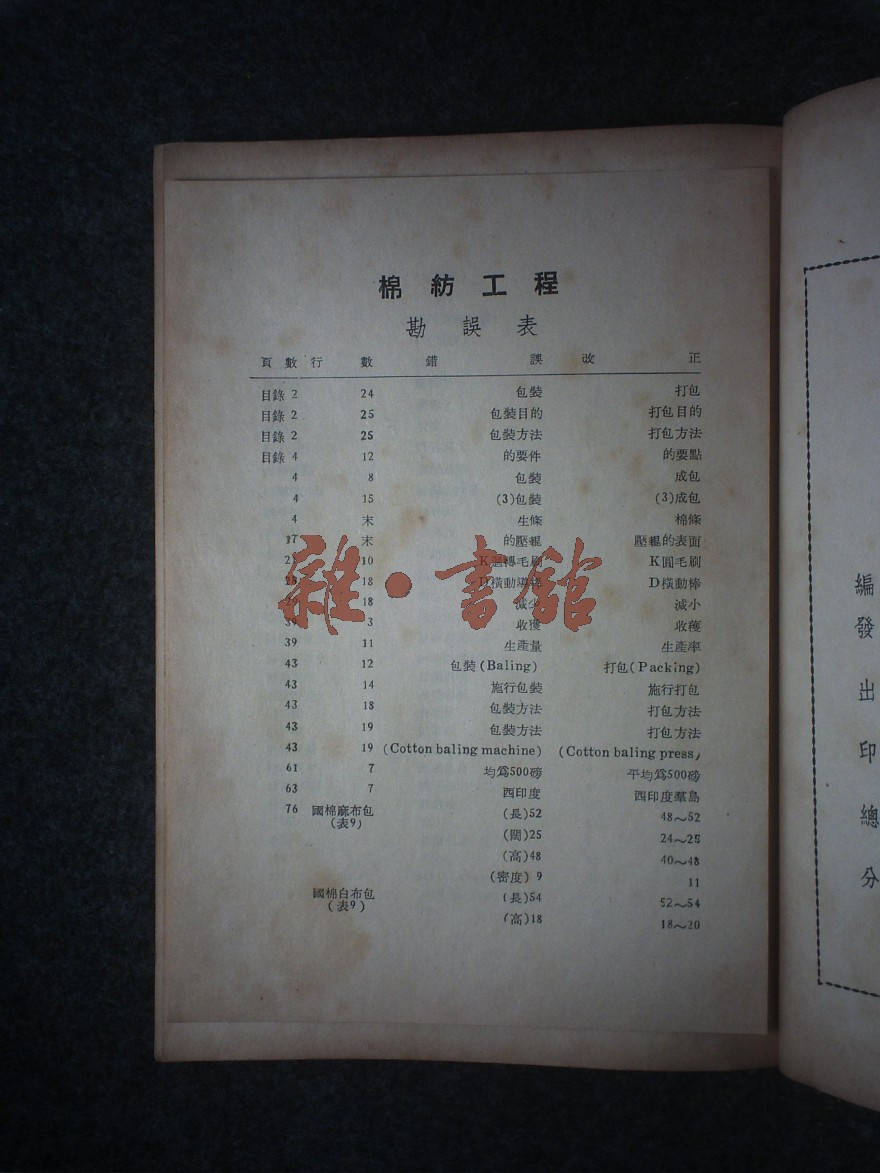 棉紡工程
勘誤表
頁數 行數 錯誤 改正
目錄 2 24 包裝 打包
目錄 2 25 包裝目的 打包目的
目錄 2 25 包裝方法 打包方法
目錄 4 12 的要件 的要點
4 8 包裝 成包
4 15 (3)包裝 (3)成包
4 末 生條 棉條
17 末 的壓輥 壓輥的表面
10 K 轉毛刷 K圓毛刷
18 D橫動 棒 D橫動棒
18 減少 減小
39 3 收獲 收穫
39 11 生產量 生產率
43 12 包裝(Baling) 打包(Packing)
43 14 施行包裝 施行打包
43 18 包裝方法 打包方法
43 19 包裝方法 打包方法
43 19 (Cotton baling machine) (Cotton baling press)
61 7 均爲500磅 平均爲500磅
63 7 西印度 西印度羣島
76 國棉麻布包 (長)52 48～52
(表9)
(闊)25 24～25
(高)48 40～48
(密度) 9 11
國棉白布包 (長)54 52～54
(表9)
(高)18 18～20
雜·書館
編
發
出
印
總
分